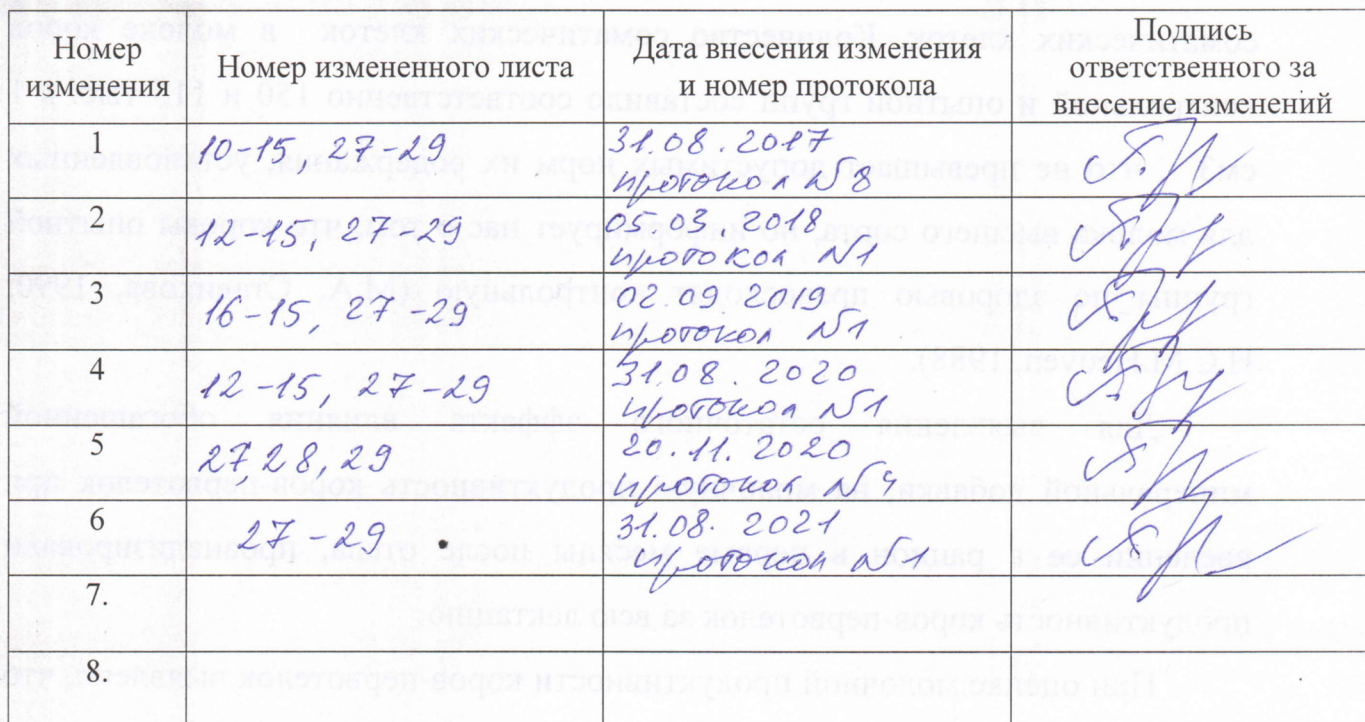 Номер изменения
Номер измененного листа
Дата внесения изменения и номер протокола
Подпись ответственного за внесение изменений
1
10-15, 27-29
31.08.2017
протокол №8
2
12-15, 27-29
05.03.2018
протокол №1
3
16-15, 27-29
02.09.2019
протокол №1
4
12-15, 27-29
31.08.2020
протокол №1
5
27, 28, 29
20.11.2020
протокол №4
6
27-29
31.08.2021
протокол №1
7.
8.